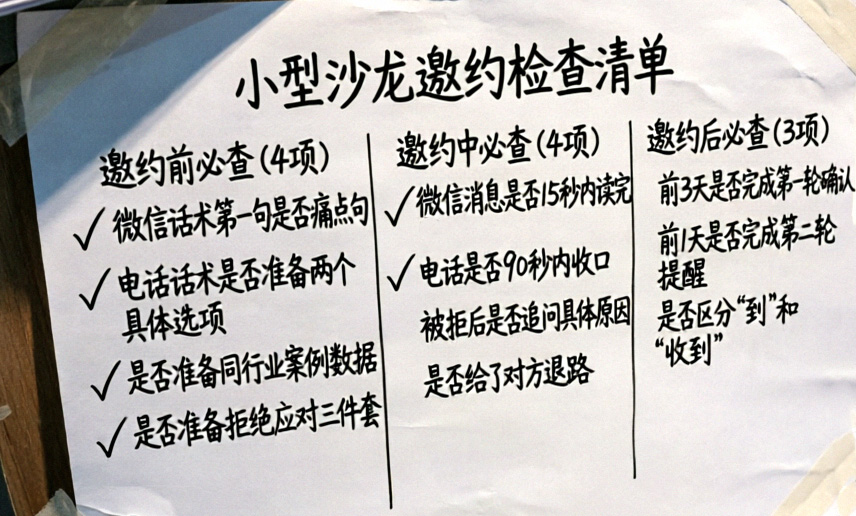 小型沙龙邀约检查清单
邀约前必查(4项)
✓ 微信话术第一句是否痛点句
✓ 电话话术是否准备两个
具体选项
✓ 是否准备同行业案例数据
✓ 是否准备拒绝应对三件套
邀约中必查(4项)
✓ 微信消息是否15秒内读完
✓ 电话是否90秒内收口
被拒后是否追问具体原因
是否给了对方退路
邀约后必查(3项)
前3天是否完成第一轮确认
前1天是否完成第二轮
提醒
是否区分“到”和
“收到”